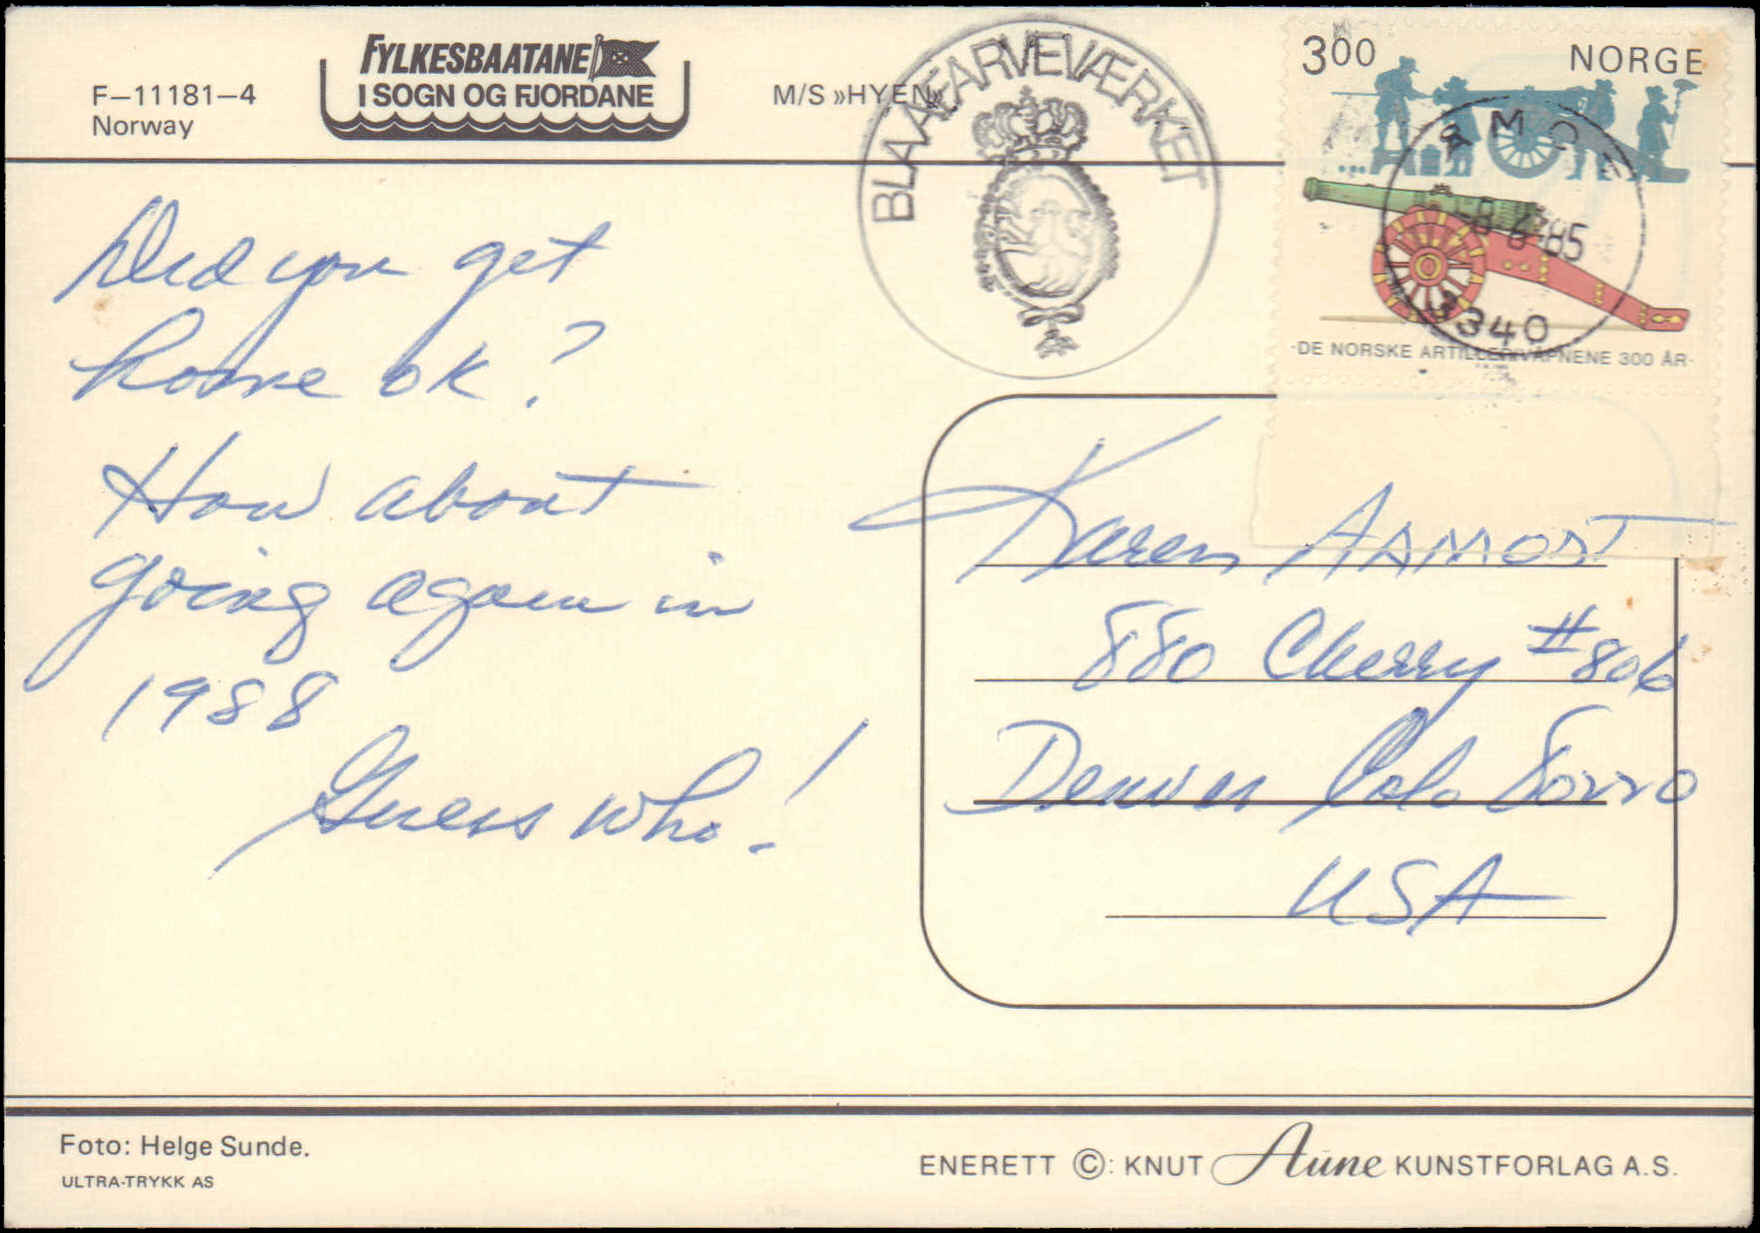 F–11181–4
Norway
FYLKESBAATANE
I SOGN OG FJORDANE
M/S »HYEN«
BLAAFARVEVÆRKET
300 NORGE
ÅMOT
-8 6-85
3340
·DE NORSKE ARTILLERIVÅPNENE 300 ÅR·
Did you get
home ok?
How about
going again in
1988
Guess who!
Karen AAMOST
880 Cherry #806
Denver Colo 80220
USA
Foto: Helge Sunde.
ULTRA-TRYKK AS
ENERETT ©: KNUT Aune KUNSTFORLAG A.S.